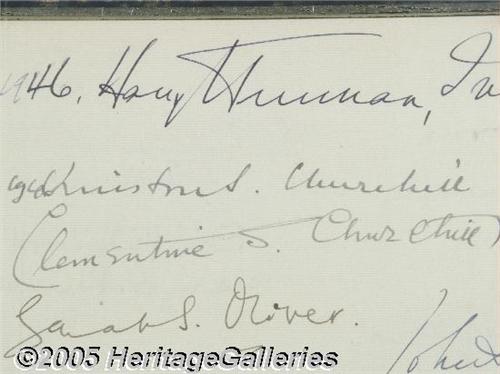 1946, Harry Truman,
Winston S. Churchill
Clementine S. Churchill
Sarah S. Oliver.
John
©2005 HeritageGalleries